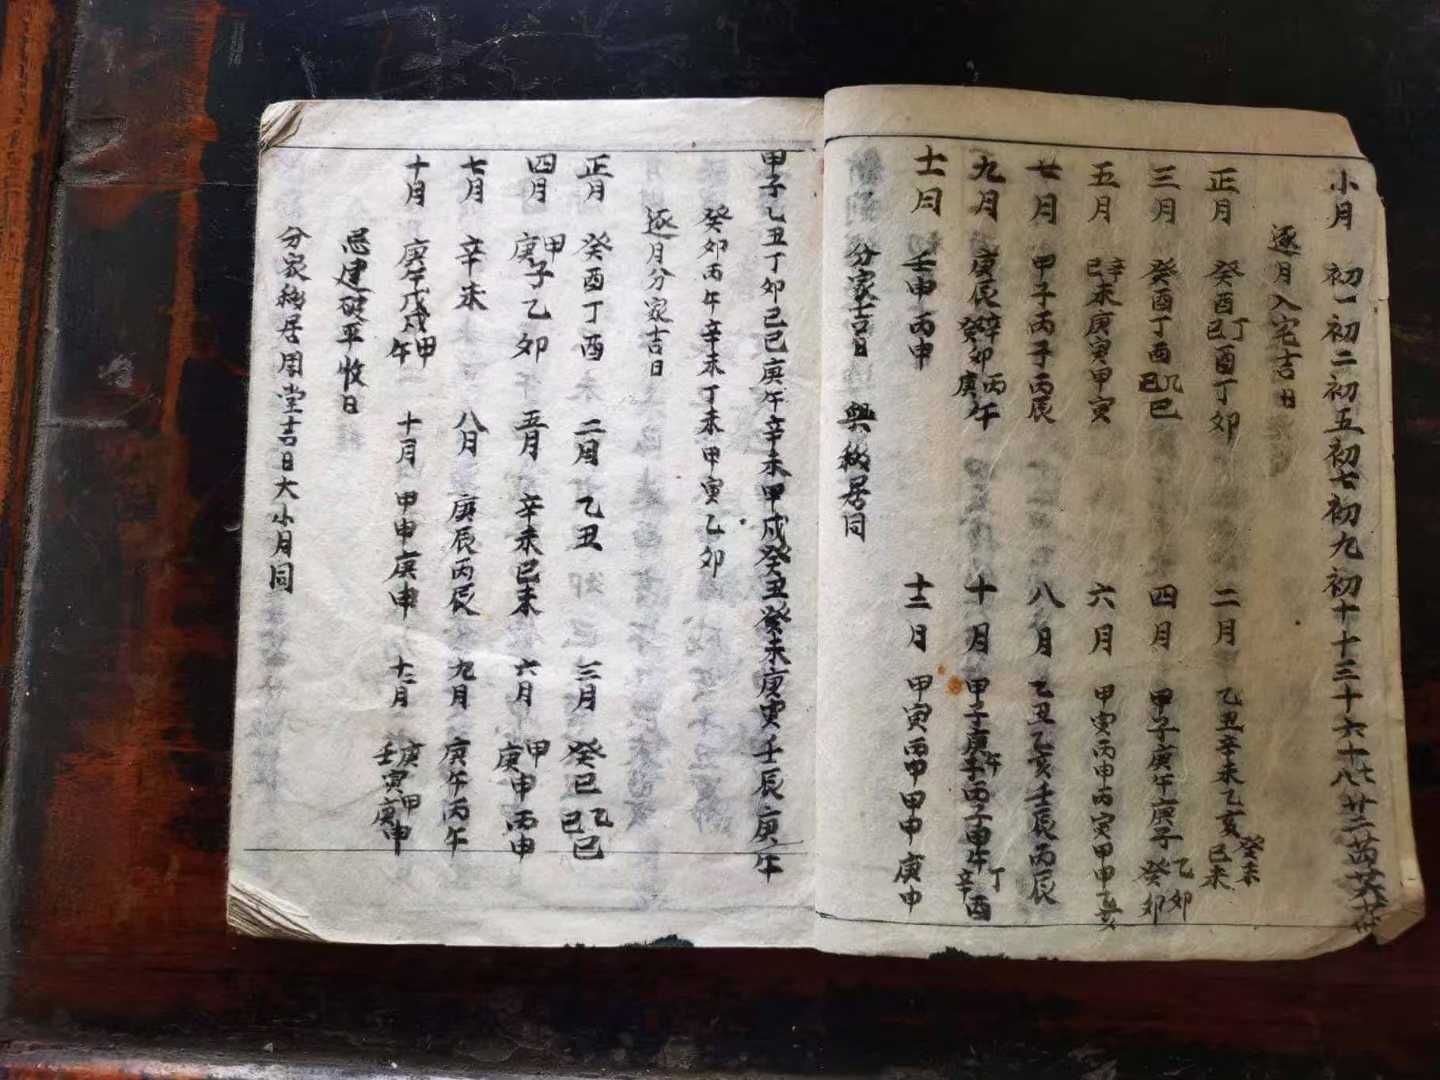 小月 初一初二初五初七初九初十十三十六十七十八廿二
逐月入宅吉日
正月 癸酉丁酉己酉丁卯 二月 乙丑辛未乙亥己未癸未
三月 癸酉丁酉乙巳己巳 四月 甲子庚午庚子癸卯乙卯
五月 辛未己未庚寅甲寅 六月 甲寅丙申丙寅甲申乙亥
七月 甲子丙子丙辰 八月 乙丑乙亥壬辰丙辰
九月 庚辰辛卯癸卯丙午庚午 十月 甲子庚午庚子丙子甲午丁酉辛酉
十一月 壬申丙申 十二月 甲寅丙申甲申庚申
分家吉日 與移居同
甲子乙丑丁卯己巳庚午辛未甲戌癸丑癸未庚寅壬辰庚午
癸卯丙午辛未丁未甲寅乙卯
逐月分家吉日
正月 癸酉丁酉 二月 乙丑 三月 癸巳乙巳己巳
四月 甲子庚子乙卯 五月 辛未己未 六月 甲申庚申丙申
七月 辛未 八月 庚辰丙辰 九月 庚午丙午
十月 庚午戊戌甲午 十一月 甲申庚申 十二月 庚寅壬寅甲申庚申
忌建破平收日
分家移居周堂吉日大小月同